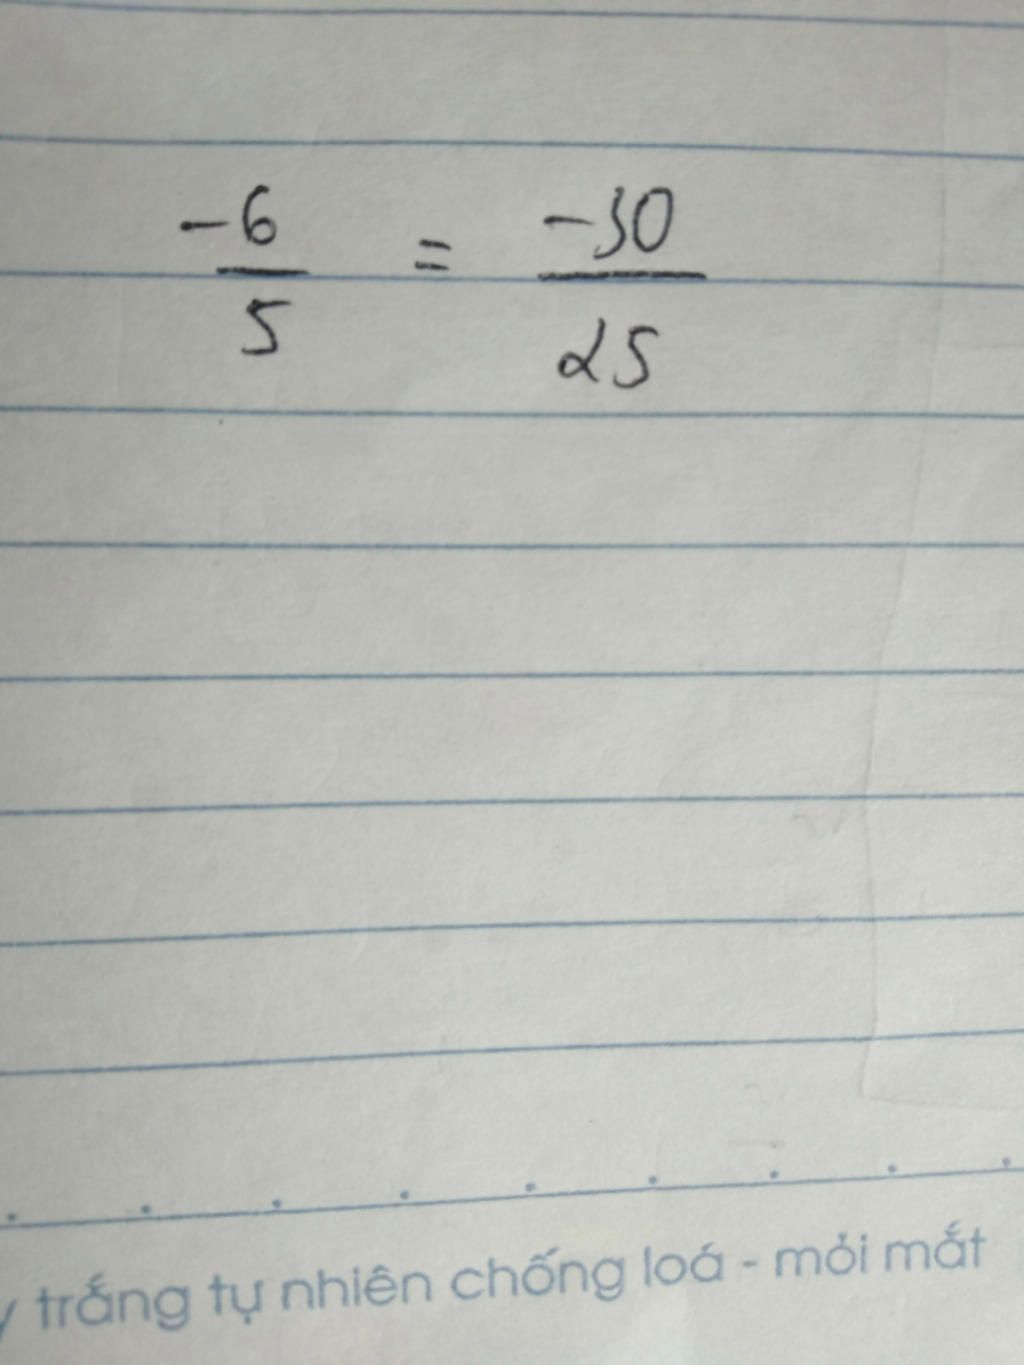 -6/5 = -30/25
trắng tự nhiên chống loá - mỏi mắt